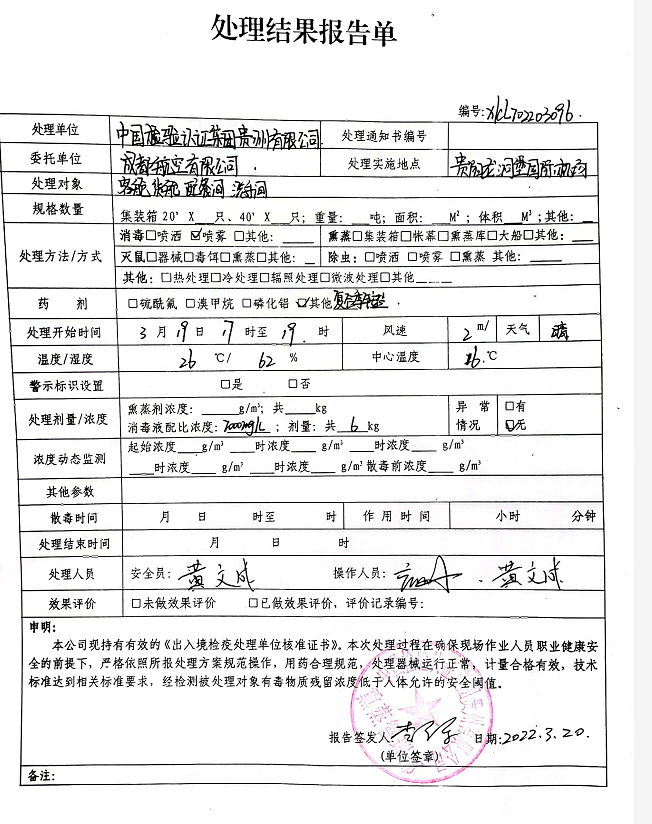 处理结果报告单
编号:
处理单位 中国检验认证集团贵州有限公司 处理通知书编号
委托单位 成都航空有限公司 处理实施地点 贵阳龙洞堡国际机场
处理对象 客舱 货舱 配餐间
规格数量 集装箱20' X___只、40' X___只; 重量:___吨; 面积:___M²; 体积___M³; 其他:___
处理方法/方式 消毒□喷洒 ☑喷雾 □其他:____ 熏蒸□集装箱□帐幕□熏蒸库□大船□其他:___
灭鼠□器械□毒饵□熏蒸□其他:____ 除虫:□喷洒 □喷雾 □熏蒸 其他:____
其他:□热处理□冷处理□辐照处理□微波处理□其他____
药 剂 □硫酰氟 □溴甲烷 □磷化铝 ☑其他
处理开始时间 3月19日17时至19.时 风速 2 m/ 天气 晴
温度/湿度 26 ℃/ 62 % 中心温度 26.℃
警示标识设置 □是 □否
处理剂量/浓度 熏蒸剂浓度:____g/m³; 共____kg 异 常 □有
消毒液配比浓度:1000mg/L ; 剂量: 共 6 kg 情况 ☑无
浓度动态监测 起始浓度____g/m³ ____时浓度____g/m³ ____时浓度____g/m³
____时浓度____g/m³ ____时浓度____g/m³ 散毒前浓度____g/m³
其他参数
散毒时间 月 日 时至 时 作 用 时 间 小时 分钟
处理结束时间 月 日 时
处理人员 安全员: 黄文成 操作人员: 黄文成
效果评价 □未做效果评价 □已做效果评价, 评价记录编号:
申明:
本公司现持有有效的《出入境检疫处理单位核准证书》。本次处理过程在确保现场作业人员职业健康安
全的前提下, 严格依照所报处理方案规范操作, 用药合理规范, 处理器械运行正常, 计量合格有效, 技术
标准达到相关标准要求, 经检测被处理对象有毒物质残留浓度低于人体允许的安全阈值。
报告签发人: 日期:2022.3.20.
(单位签章)
备注: